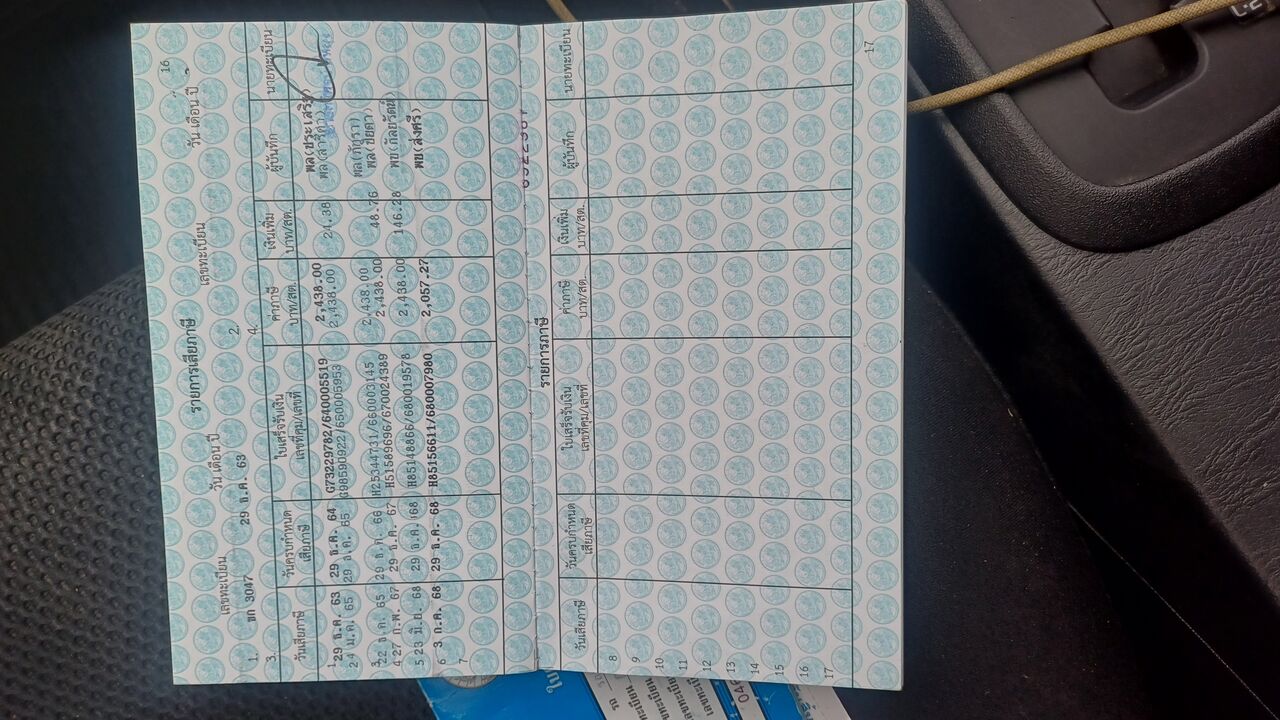 16
รายการเสียภาษี
เลขทะเบียน วัน เดือน ปี เลขทะเบียน วัน เดือน ปี
1. ขก 3047 29 ธ.ค. 63 2.
3. 4.
วันเสียภาษี วันครบกำหนดเสียภาษี ใบเสร็จรับเงิน เลขที่คุม/เลขที่ ค่าภาษี บาท/สต. เงินเพิ่ม บาท/สต. ผู้บันทึก นายทะเบียน
1 29 ธ.ค. 63 29 ธ.ค. 64 G73229782/640005519 2,438.00 พล(ประเสริฐ)
24 ม.ค. 65 29 ธ.ค. 65 G98590922/650005953 2,438.00 24.38
3 22 ธ.ค. 65 29 ธ.ค. 66 H25344731/660003145 2,438.00
4 27 ก.พ. 67 29 ธ.ค. 67 H51589696/670024389 2,438.00 48.76
5 23 มิ.ย. 68 29 ธ.ค. 68 H85148866/680019578 2,438.00 146.28 พข(กัลยรัตน์)
6 3 ก.ค. 68 29 ธ.ค. 68 H85156611/680007980 2,057.27 พข(ส่งศรี)
7
รายการภาษี
วันเสียภาษี วันครบกำหนดเสียภาษี ใบเสร็จรับเงิน เลขที่คุม/เลขที่ ค่าภาษี บาท/สต. เงินเพิ่ม บาท/สต. ผู้บันทึก นายทะเบียน
8
9
10
11
12
13
14
15
16
17
17